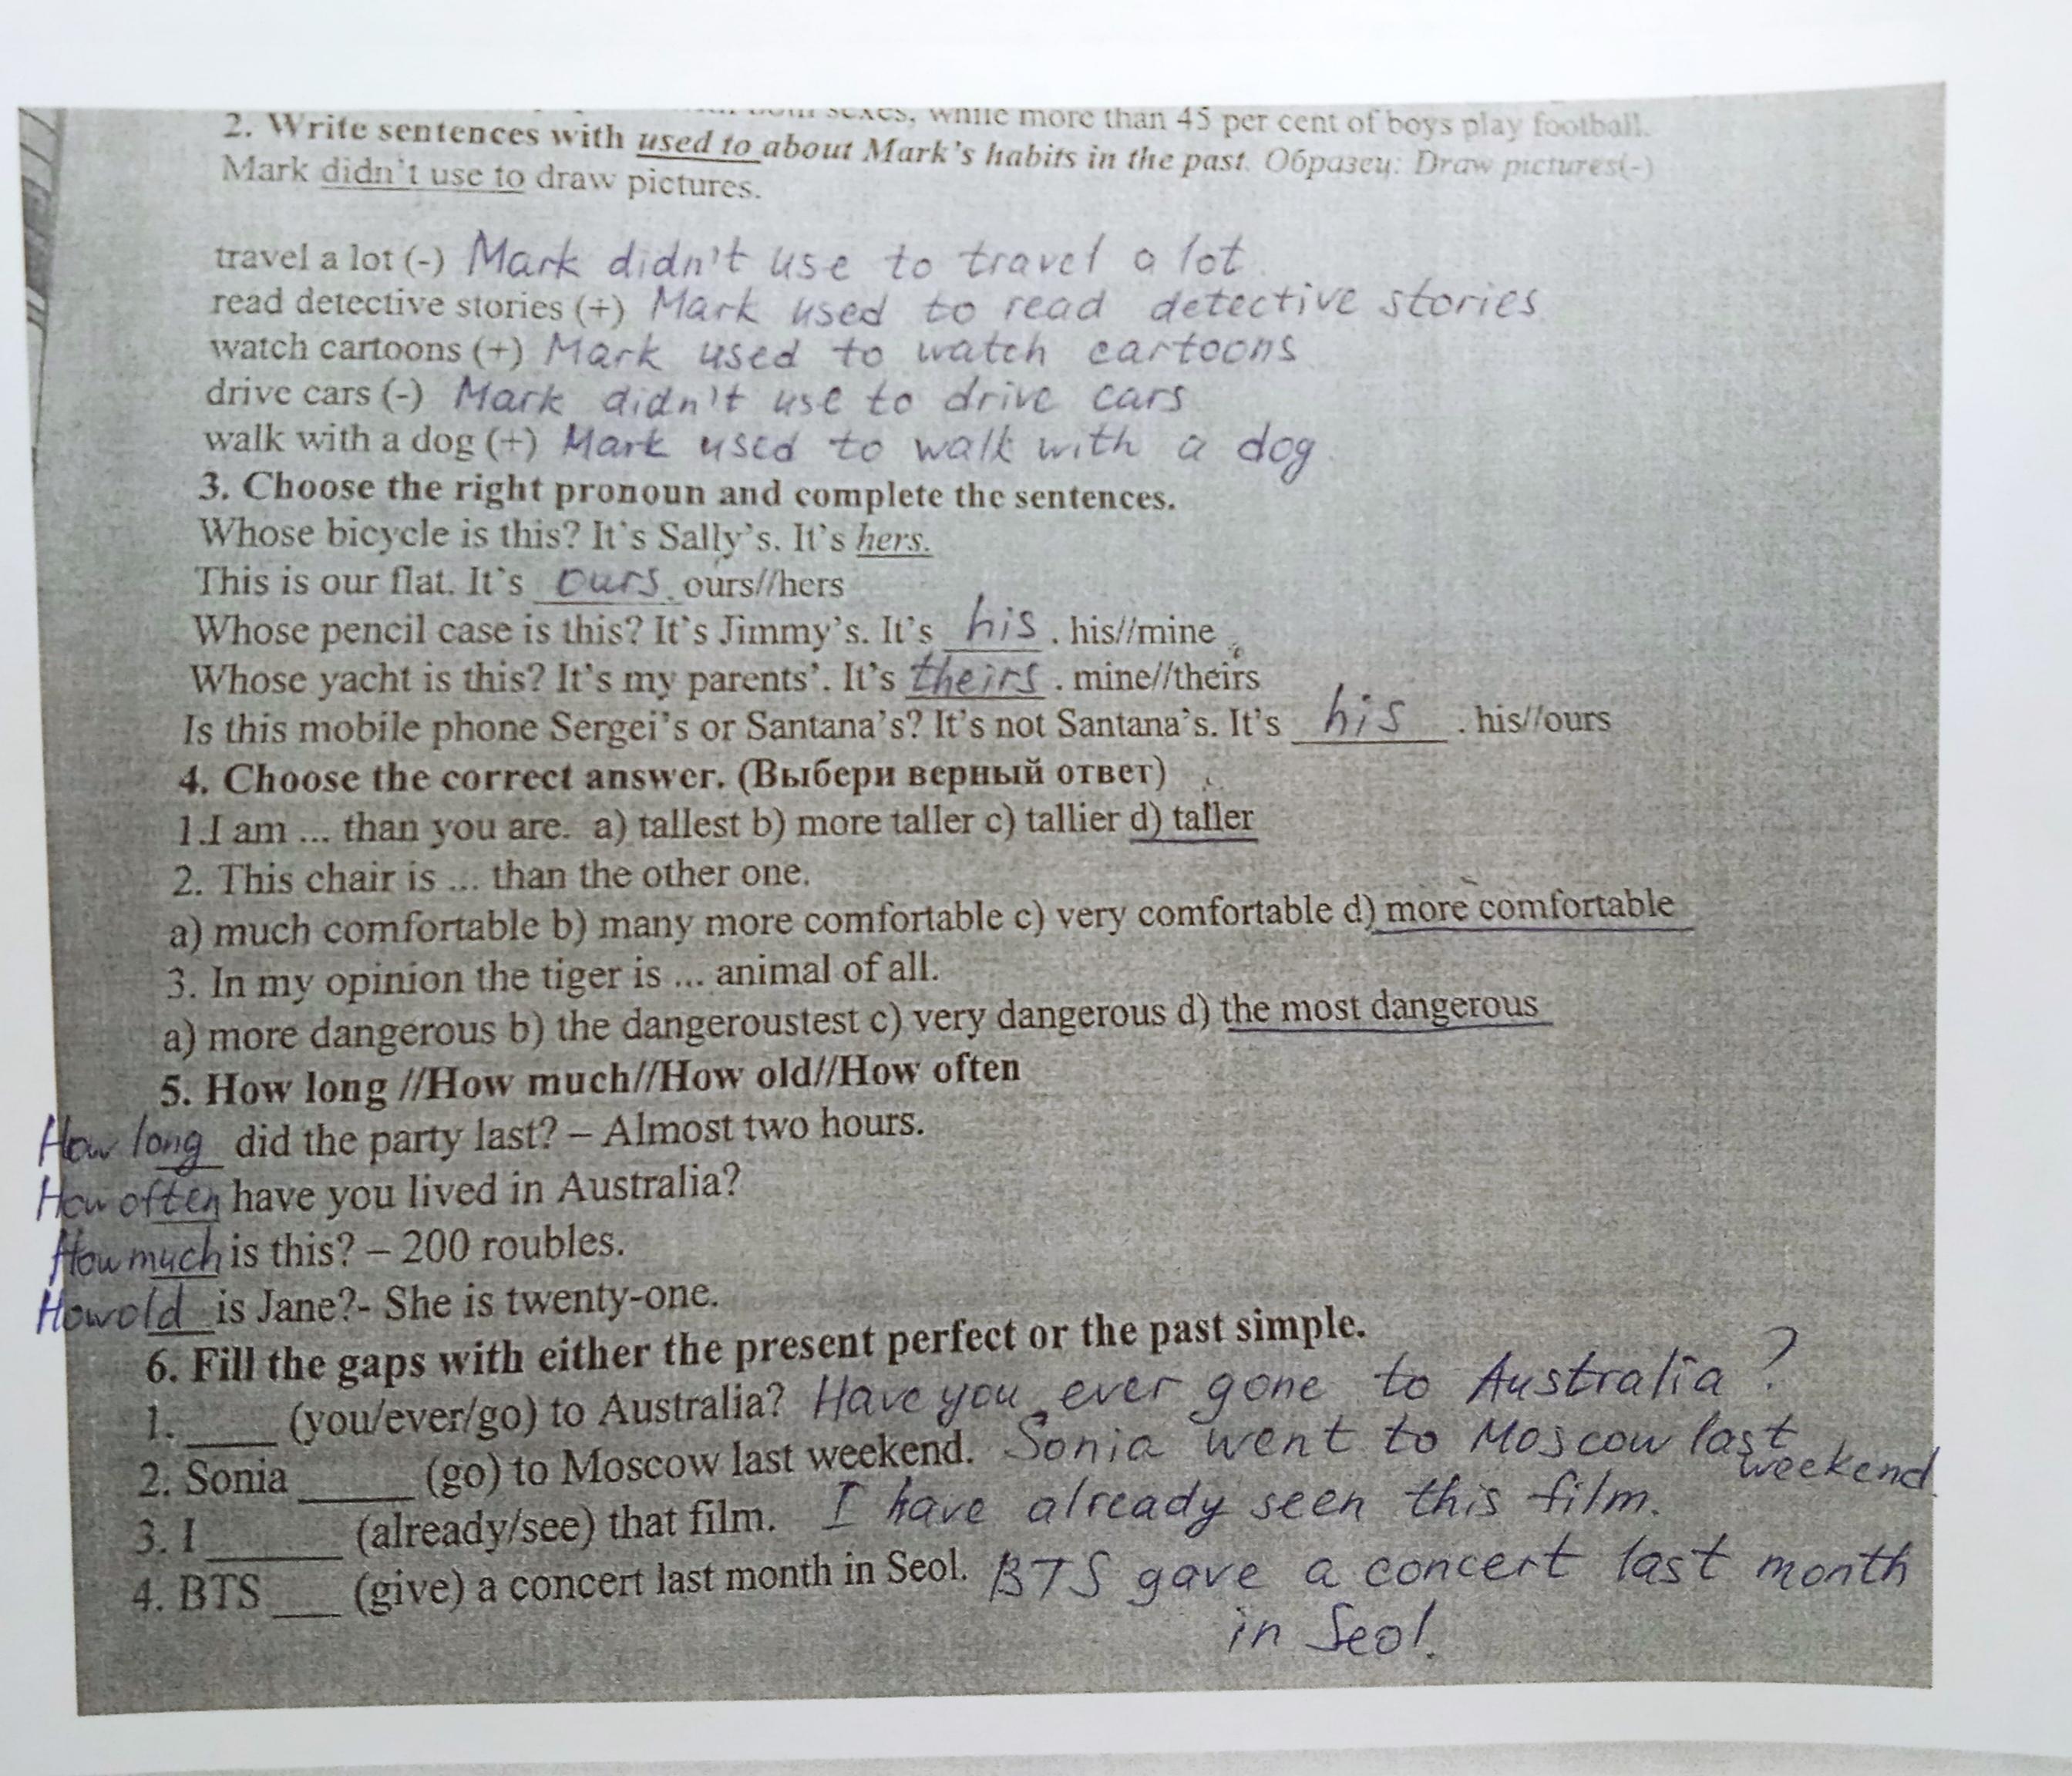 sexes, while more than 45 per cent of boys play football.
2. Write sentences with used to about Mark's habits in the past. Образец: Draw pictures(-)
Mark didn't use to draw pictures.
travel a lot (-) Mark didn't use to travel a lot.
read detective stories (+) Mark used to read detective stories
watch cartoons (+) Mark used to watch cartoons
drive cars (-) Mark didn't use to drive cars
walk with a dog (+) Mark used to walk with a dog.
3. Choose the right pronoun and complete the sentences.
Whose bicycle is this? It's Sally's. It's hers.
This is our flat. It's ours. ours//hers
Whose pencil case is this? It's Jimmy's. It's his. his//mine
Whose yacht is this? It's my parents'. It's theirs. mine//theirs
Is this mobile phone Sergei's or Santana's? It's not Santana's. It's his. his//ours
4. Choose the correct answer. (Выбери верный ответ)
1.I am ... than you are. a) tallest b) more taller c) tallier d) taller
2. This chair is ... than the other one.
a) much comfortable b) many more comfortable c) very comfortable d) more comfortable
3. In my opinion the tiger is ... animal of all.
a) more dangerous b) the dangeroustest c) very dangerous d) the most dangerous
5. How long //How much//How old//How often
How long did the party last? – Almost two hours.
How often have you lived in Australia?
How much is this? – 200 roubles.
How old is Jane?- She is twenty-one.
6. Fill the gaps with either the present perfect or the past simple.
1. ____ (you/ever/go) to Australia? Have you ever gone to Australia?
2. Sonia _____ (go) to Moscow last weekend. Sonia went to Moscow last weekend.
3. I ______ (already/see) that film. I have already seen this film.
4. BTS ___ (give) a concert last month in Seol. BTS gave a concert last month
in Seol.